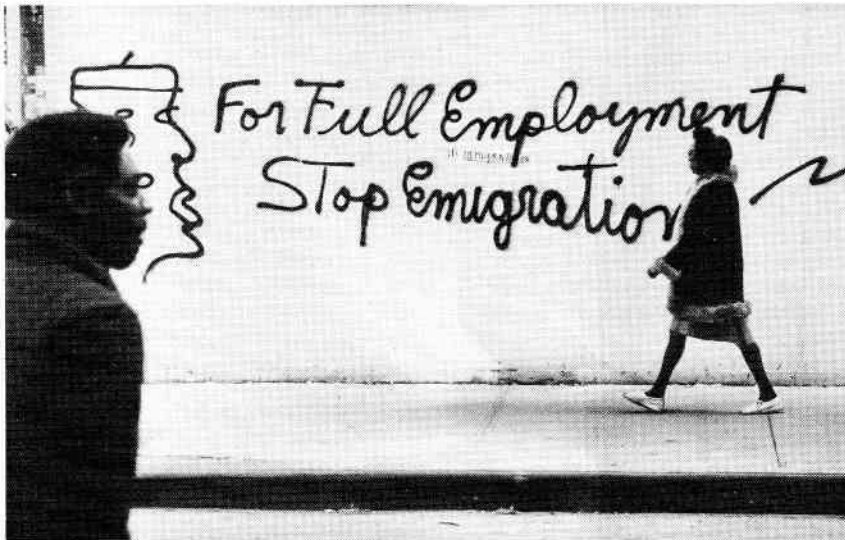 For Full Employment
Stop Emigration